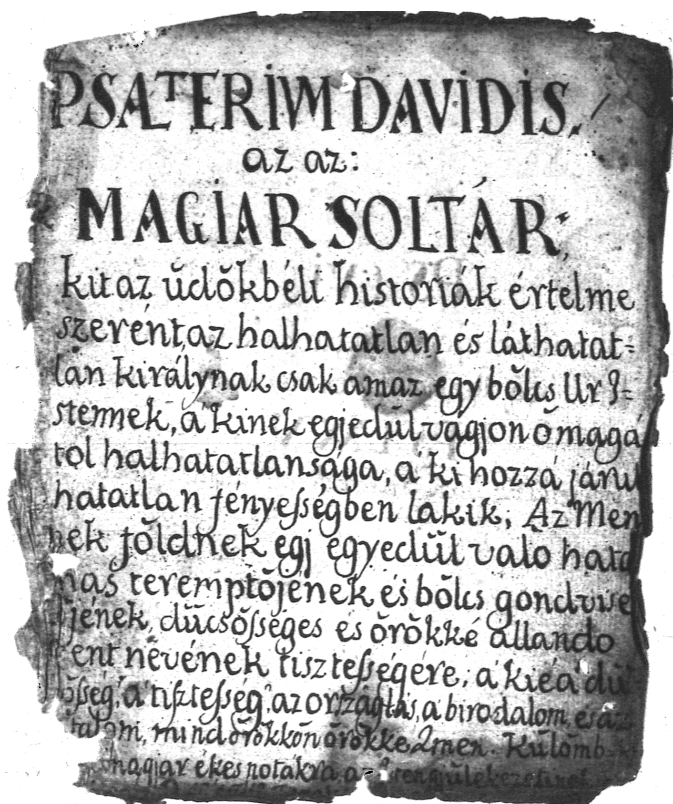 PSALTERIUM DAVIDIS.
az az:
MAGIAR SOLTÁR;
kit az üdőkbéli historiák értelme
szerént, az halhatatlan és láthatat-
lán királynak csak amaz egy bőlcs Ur I-
stennek, á kinek egjedűl vagjon őmagá
tol halhatatlansága, á ki hozzá járul
hatatlan fényeſségben lakik; Az Men
nek főldnek egj egyedűl való hata
mas teremptőjének és bőlcs gondvise
jének, dűcsőſséges és őrőkké állando
ent nevének tisz teſségére, á kié á dűt
őſség, á tiſzteſség, az országlás, a birodalom, és az
talom, mind őrőkkőn őrőkke Amen. Kűlőmb
magjar ékes notákra az